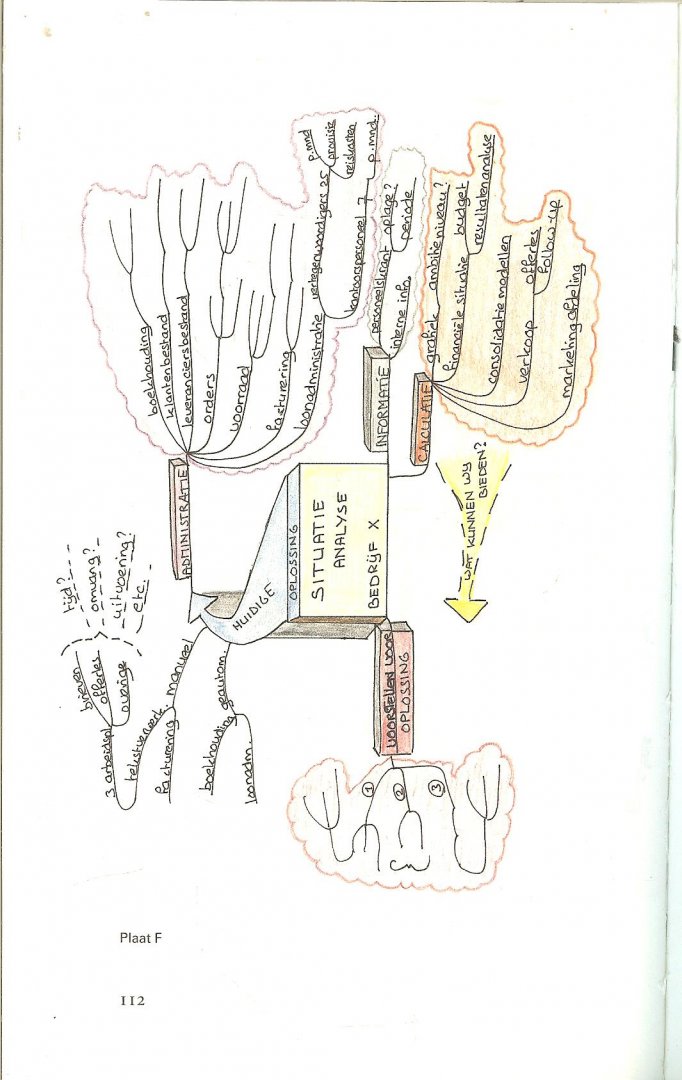 SITUATIE
ANALYSE
BEDRIJF X
HUIDIGE
OPLOSSING
ADMINISTRATIE
boekhouding
klantenbestand
leveranciersbestand
orders
voorraad
facturering
loonadministratie
vertegenwoordigers 25
p.mnd
provisie
reiskosten
kantoorpersoneel 7
p.mnd.
INFORMATIE
personeelskrant
oplage?
periode
interne info.
CALCULATIE
grafiek
ambitie niveau?
financiële situatie
budget
resultaten analyse
consolidatie modellen
verkoop
offertes
follow-up
marketing afdeling
WAT KUNNEN WY
BIEDEN?
VOORSTELLEN VOOR
OPLOSSING
1
2
3
manueel
tekstverwerk.
3 arbeidspl
brieven
offertes
overige
tijd?
omvang?
uitvoering?
etc.
facturering
geautom.
boekhouding
loonadm.
Plaat F
112